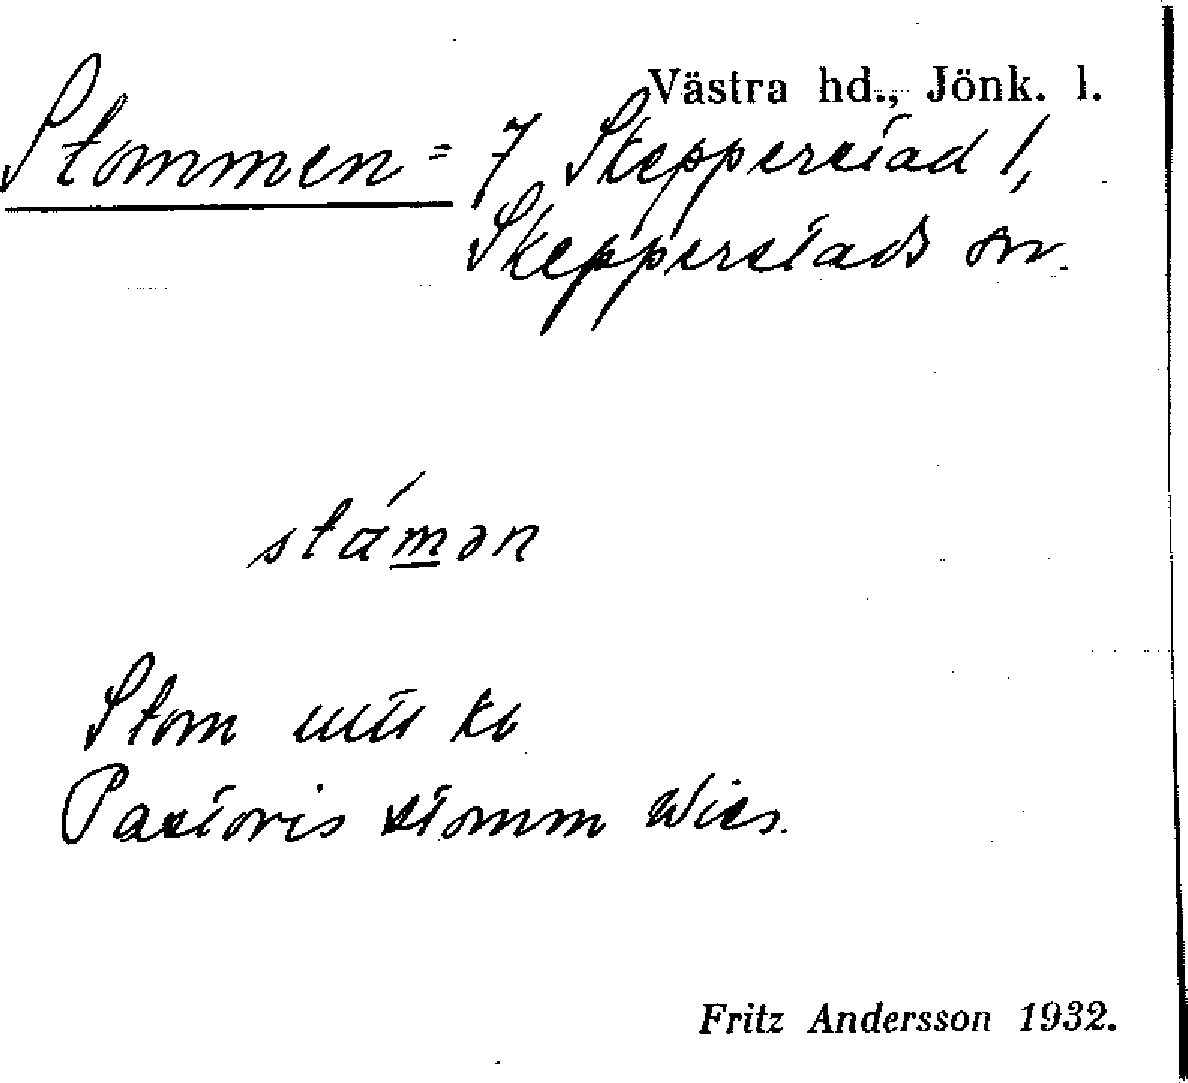 Västra hd., Jönk. l.
Stommen = 7 Skepperstad 1,
Skepperstads sn.
stámən
Stom
Pastoris stomm Wies.
Fritz Andersson 1932.